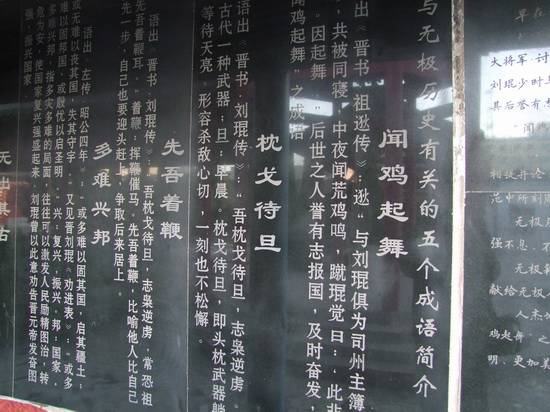 早在
大将军、讨
刘琨少时
其后誉有
闻
强不息、不
无极
献给无极人
人杰地
鸡起舞”之
明、更加美
与无极历史有关的五个成语简介
闻鸡起舞
语出《晋书·祖逖传》：逖“与刘琨俱为司州主簿
，共被同寝，中夜闻荒鸡鸣，蹴琨觉曰：‘此非
。因起舞”，后世之人誉有志报国，及时奋发，
闻鸡起舞”之成语
枕戈待旦
语出《晋书·刘琨传》：“吾枕戈待旦，志枭逆虏。
古代一种武器；旦：早晨。枕戈待旦，即头枕武器躺
等待天亮。形容杀敌心切，一刻也不松懈。
先吾着鞭
语出《晋书·刘琨传》：吾枕戈待旦，志枭逆虏，常恐祖
先吾着鞭耳。”着鞭：挥鞭催马。先吾着鞭，比喻他人比自己
先一步，自己也要迎头赶上，争取后来居上。
多难兴邦
语出《左传·昭公四年》：或多难以固其国，启其疆土；
或无难以丧其国，失其守宇。”又见晋刘琨《劝进表》：“或多
难以固邦国，或殷忧以启圣明。”兴：复兴，振兴。邦：国家。
多难兴邦，指多灾多难的局面，往往可以激发人民励精图治，转
危为安，使国家复兴强盛起来。刘琨曾以此意劝告晋元帝发奋图
强，振兴国家
无出其右